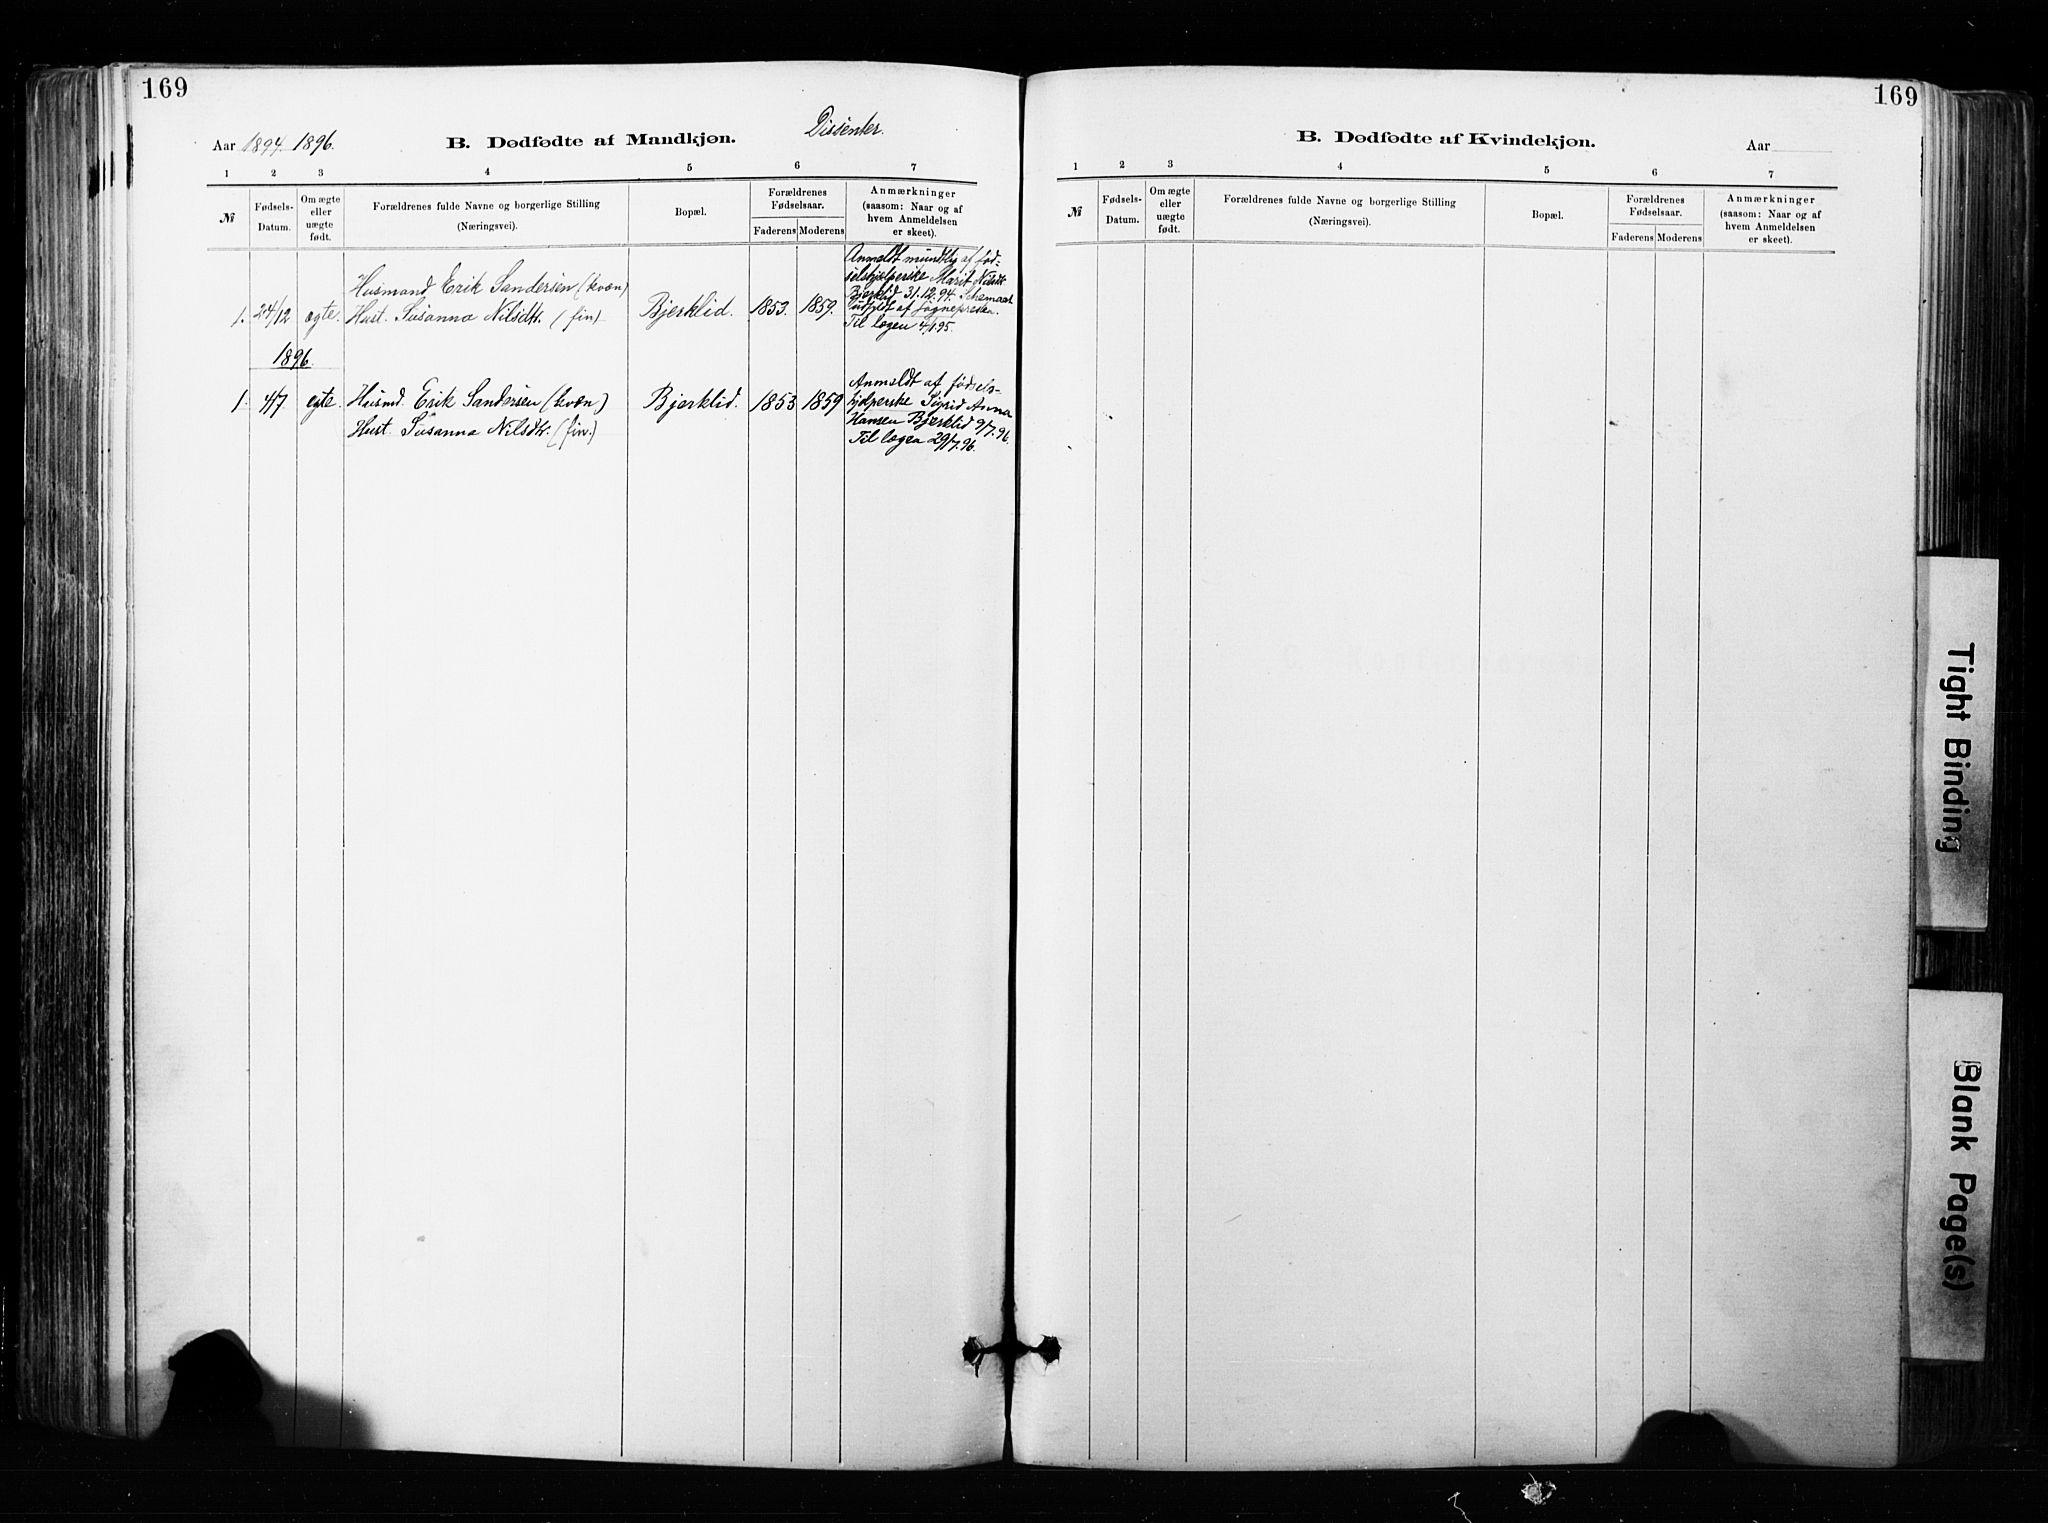 169
Aar 1894. 1896.
B. Dødfødte af Mandkjøn.
Dissenter.
1 2 3 4 5 6 7
№
Fødsels-
Datum.
Om ægte
eller
uægte
født.
Forældrenes fulde Navne og borgerlige Stilling
(Næringsvei).
Bopæl.
Forældrenes
Fødselsaar.
Faderens Moderens
Anmærkninger
(saasom: Naar og af
hvem Anmeldelsen
er skeet).
Husmand Erik Sandersen (kvæn)
1. 24/12 ægte. Hust. Susanna Nilsdtr. (fin) Bjerklid. 1853. 1859.
Anmeldt mundtlig af fød-
selshjelperske Marit Nilsdtr
Bjerklid 31.12.94. Schemaet
udfyldt af sognepresten.
Til lægen 4/1.95.
1896.
1. 4/7. egte. Husmd. Erik Sandersen (kvæn) Bjerklid. 1853 1859
Hust. Susanna Nilsdtr. (fin.)
Anmeldt af fødsels-
hjelperske Sigrid Anna
Hansen Bjerklid 9/7.96.
Til lægen 29/7.96.
169
B. Dødfødte af Kvindekjøn.
Aar
1 2 3 4 5 6 7
№
Fødsels-
Datum.
Om ægte
eller
uægte
født.
Forældrenes fulde Navne og borgerlige Stilling
(Næringsvei).
Bopæl.
Forældrenes
Fødselsaar.
Faderens Moderens
Anmærkninger
(saasom: Naar og af
hvem Anmeldelsen
er skeet).
Tight Binding
Blank Page(s)